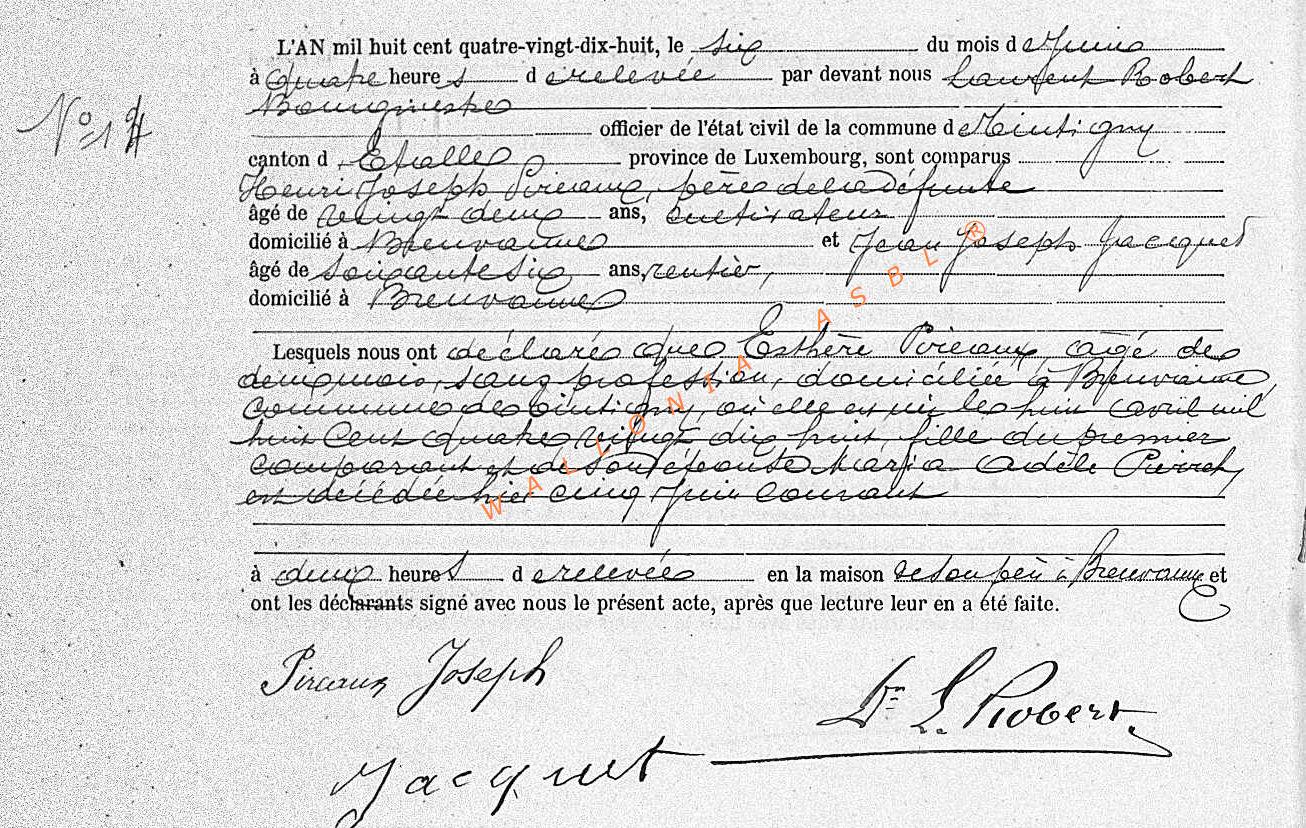 L'AN mil huit cent quatre-vingt-dix-huit, le six du mois de Juin
à quatre heures de relevée par devant nous Laurent Robert
Bourgmestre
N° 14
officier de l'état civil de la commune de Tintigny
canton d'Etalle province de Luxembourg, sont comparus
Henri Joseph Pireaux, père de la défunte
âgé de vingt deux ans, cultivateur
domicilié à Breuvanne et Jean Joseph Jacquet
âgé de soixante six ans, rentier,
domicilié à Breuvanne
Lesquels nous ont déclaré que Esthère Pireaux, agé de
deux mois, sans profession, domiciliée à Breuvanne,
commune de Tintigny, où elle est née le huit avril mil
huit cent quatre vingt dix huit, fille du premier
comparant et de son épouse Maria Adèle Pierret,
est décédée hier cinq Juin courant
à deux heures de relevée en la maison de son père à Breuvanne et
ont les déclarants signé avec nous le présent acte, après que lecture leur en a été faite.
Pireaux Joseph
Dr L. Robert
Jacquet
WALLONIA ASBL ®